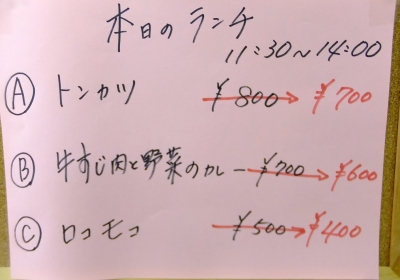 本日のランチ
11:30~14:00
Ⓐ トンカツ ¥800→¥700
Ⓑ 牛すじ肉と野菜のカレー ¥700→¥600
Ⓒ ロコモコ ¥500→¥400